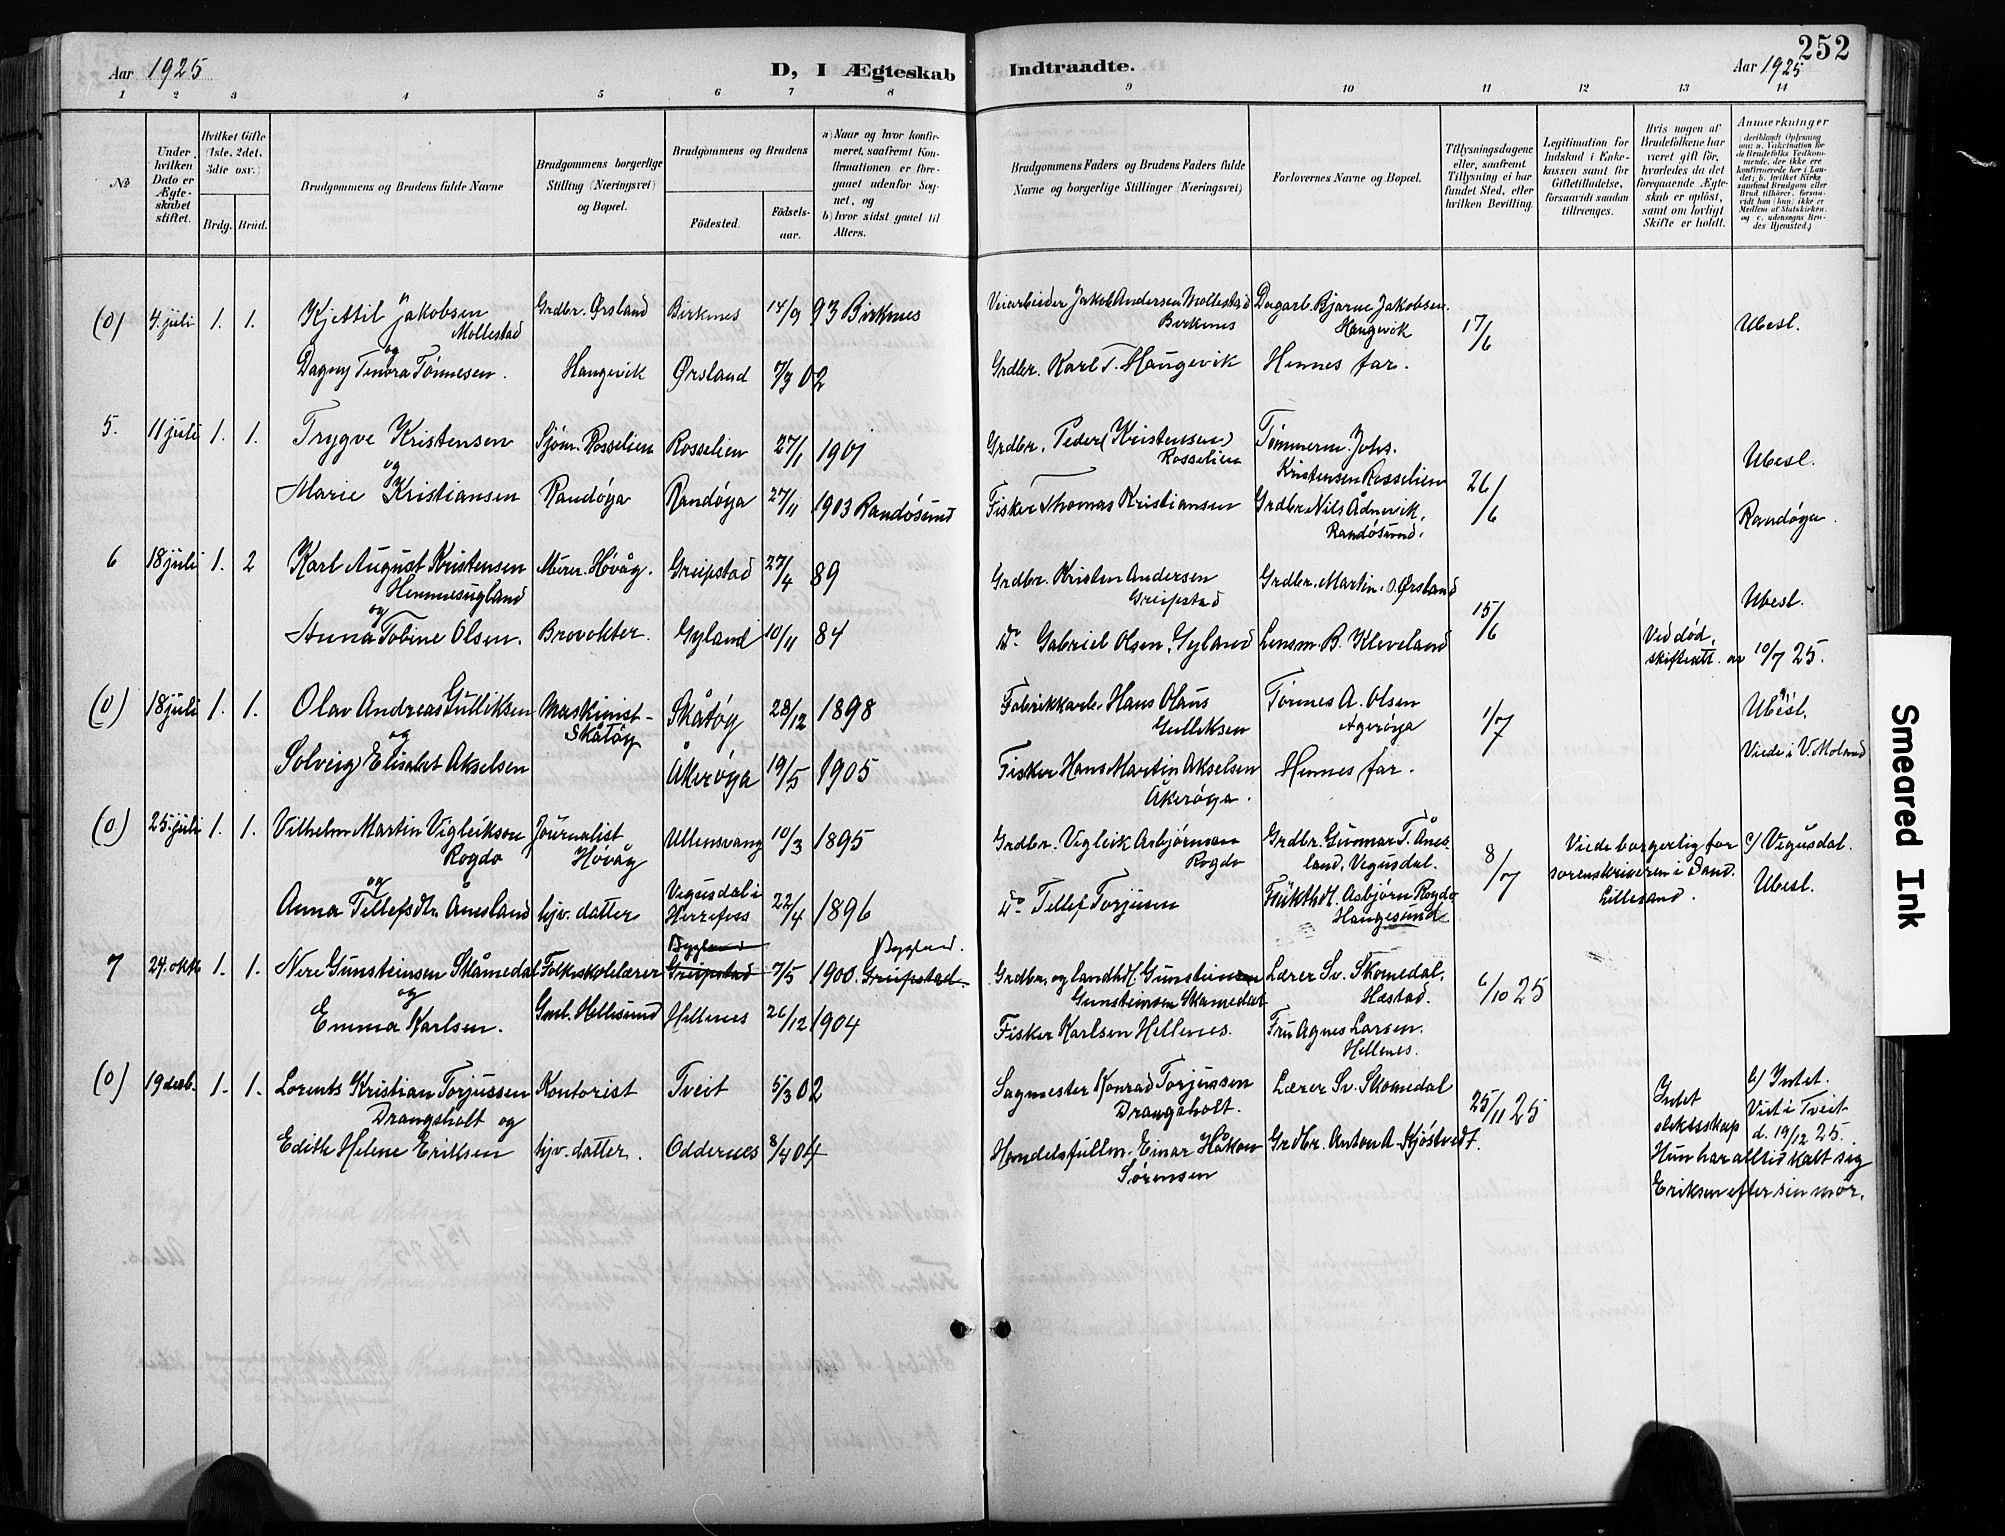 252
Aar 1925
D, I Ægteskab Indtraadte.
Aar 1925
1 2 3 4 5 6 7 8 9 10 11 12 13 14
No
Under hvilken Dato er Ægteskabet stiftet.
Hvilket Gifte (1ste, 2det, 3die osv.)
Brdg. Brud.
Brudgommens og Brudens fulde Navne
Brudgommens borgerlige Stilling (Næringsvei) og Bopæl.
Brudgommens og Brudens
Fødested.
Fødselsaar.
a) Naar og hvor konfirmeret, saafremt Konfirmationen er foregaaet udenfor Sognet, og
b) hvor sidst gaaet til Alters.
Brudgommens Faders og Brudens Faders fulde Navne og borgerlige Stillinger (Næringsvei)
Forlovernes Navne og Bopæl.
Tillysningsdagene eller, saafremt Tillysning ei har fundet Sted, efter hvilken Bevilling.
Legitimation for Indskud i Enkekassen samt for Giftetilladelse, forsaavidt saadan tiltrænges.
Hvis nogen af Brudefolkene har været gift før, hvorledes da det foregaaende Ægteskab er opløst, samt om lovligt Skifte er holdt.
Anmerkninger
(deriblandt Oplysning om: a. Vakcination for de Brudefolks Vedkommende, der ikke ere konfirmerede her i Landet; b. hvilket Kirkesamfund Brudgom eller Brud tilhører, forsaavidt han (hun) ikke er Medlem af Statskirken, og c. udensogns Brudes Hjemsted.)
(0) 4. juli 1. 1. Kjettil Jakobsen Grdbr. Ørsland Birkenes 14/9 93 Birkenes Veiarbeider Jakob Andersen Mollestad Dagarb. Bjarne Jakobsen 17/6 Ubesl.
Mollestad Birkenes Haugevik
og
Dagny Tenora Tønnesen. Haugevik Ørsland 7/9 02 Grdbr. Karl T. Haugevik Hennes far.
5. 11 juli 1. 1. Trygve Kristensen Sjøm. Rosselien Rosselien 27/1 1901 Grdbr. Peder (Kristensen) Tømmerm. Johs. 26/6 Ubesl.
og Rosselien Kristensen Rosselien
Marie Kristiansen Randøya Randøya 27/11 1903 Randøsund Fisker Thomas Kristiansen Grdbr. Nils Ådnevik, Randøya.
Randøsund.
6 18 juli 1. 2 Karl August Kristensen Murer. Høvåg. Greipstad 27/4 89 Grdbr. Kristen Andersen Grdbr. Martin Ørsland 15/6 Ubesl.
Hennesugland Greipstad
og
Anna Tobine Olsen. Brovokter. Gyland 10/11 84 Do Gabriel Olsen, Gyland Lensm. B. Kleveland Ved død, skifteatt. av 10/7 25.
(0) 18 juli 1. 1. Olav Andreas Gulliksen Maskinist Skåtøy 28/12 1898 Fabrikkarb. Hans Olaus Tønnes A. Olsen 1/7 Ubesl.
og Skåtøy Gulliksen Agerøya
Solveig Elisabet Akselsen Åkerøya 19/5 1905 Fisker Hans Martin Akselsen Hennes far. Viede i V. Moland
Åkerøya.
(0) 25. juli 1. 1. Vilhelm Martin Vigleikson Journalist Ullensvang 10/3 1895 Grdbr. Vigleik Asbjørnson Grdbr. Gunmar T. Ånesland, Vegusdal. 8/7 Viede borgerlig for sorenskriveren i Sand. Lillesand. c/ Vegusdal.
Rogdo Høvåg Rogdo
og
Anna Tellefsdtr. Ånesland hjv. datter Vegusdal i Herrefoss 22/4 1896 Do Tellef Torjusen Asbjørn Rogdo Ubesl.
Haugesund
7 24. okt. 1. 1. Nere Gunsteinsen Skåmedal Folkeskolelærer Bygland Greipstad 7/5 1900. Bygland. Greipstad. Grdbr. og landhdl. Gunstein Lærer Sv. Skomedal, 6/10 25
og Gunsteinsen Skåmedal Hæstad.
Emma Karlsen. Gml. Hellesund Hellenes 26/12 1904 Fisker Karlsen Hellenes. Fru Agnes Larsen.
Hellenes.
(0) 19 desb. 1. 1. Lorents Kristian Torjussen Kontorist Tveit 5/3 02 Sagmester Konrad Torjussen Lærer Sv. Skomedal 25/11 25 Intet slektsskap b/ Intet.
Drangsholt og Drangsholt. Viet i Tveit d. 19/12 25.
Edith Helene Eriksen hjv. datter. Oddernes 8/4 04 Handelsfullm. Einar Håkon Grdbr. Anton A. Kjøstvedt. Hun har alltid kalt sig
Sørensen Eriksen efter sin mor.
Smeared Ink